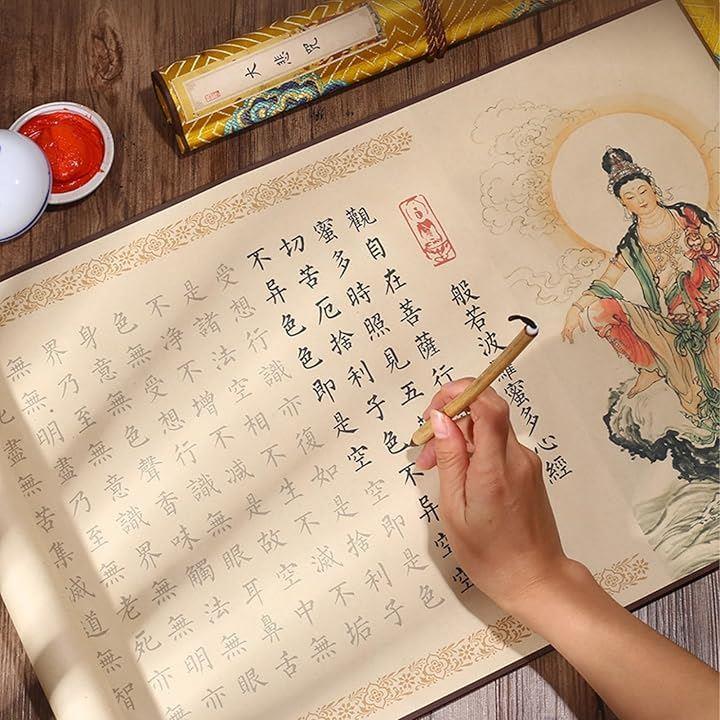 大悲咒
般若波羅蜜多心經
觀自在菩薩行
蜜多時照見五
切苦厄捨利子色不异空空
不异色色即是空空即是色
受想行識亦復如是捨利子
是諸法空相不生不滅不垢
不净不增不減是故空中無
色無受想行識無眼耳鼻舌
身意無色聲香味觸法無眼
界乃至無意識界無無明亦
無無明盡乃至無老死亦無
盡無苦集滅道無智